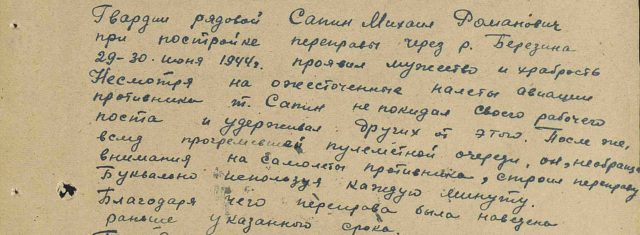 Гвардии рядовой Сапин Михаил Романович
при постройке переправы через р. Березина
29-30 июня 1944г. проявил мужество и храбрость
Несмотря на ожесточенные налеты авиации
противника т. Сапин не покидал своего рабочего
поста и удерживал других от этого. После же,
вслед прогремевшей пулеметной очереди, он, необращая
внимания на самолеты противника, строил переправу
Буквально используя каждую минуту.
Благодаря чего переправа была наведена
раньше указанного срока.